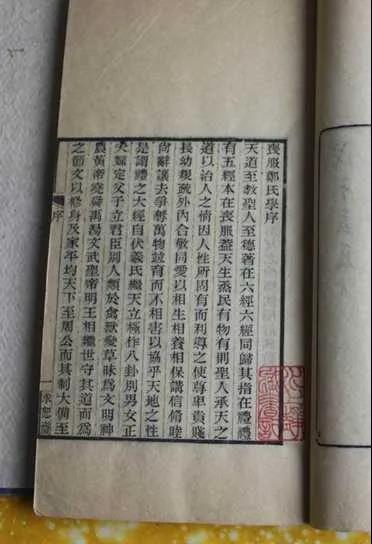 喪服鄭氏學序
天道至教聖人至德著在六經六經同歸其指在禮禮
有五經本在喪服蓋天生烝民有物有則聖人承天之
道以治人之情因人性所固有而利導之使尊卑貴賤
長幼親疏外內合敬同愛以相生相養相保講信脩睦
尚辭讓去爭奪萬物竝育而不相害以協乎天地之性
是謂禮之大經自伏羲氏繼天立極作八卦別男女正
夫婦定父子立君臣別人類於禽獸變草昧爲文明神
農黃帝堯舜禹湯文武聖帝明王相繼世守其道而爲
之節文以修身及家平均天下至周公而其制大備至
序
一
求恕齋